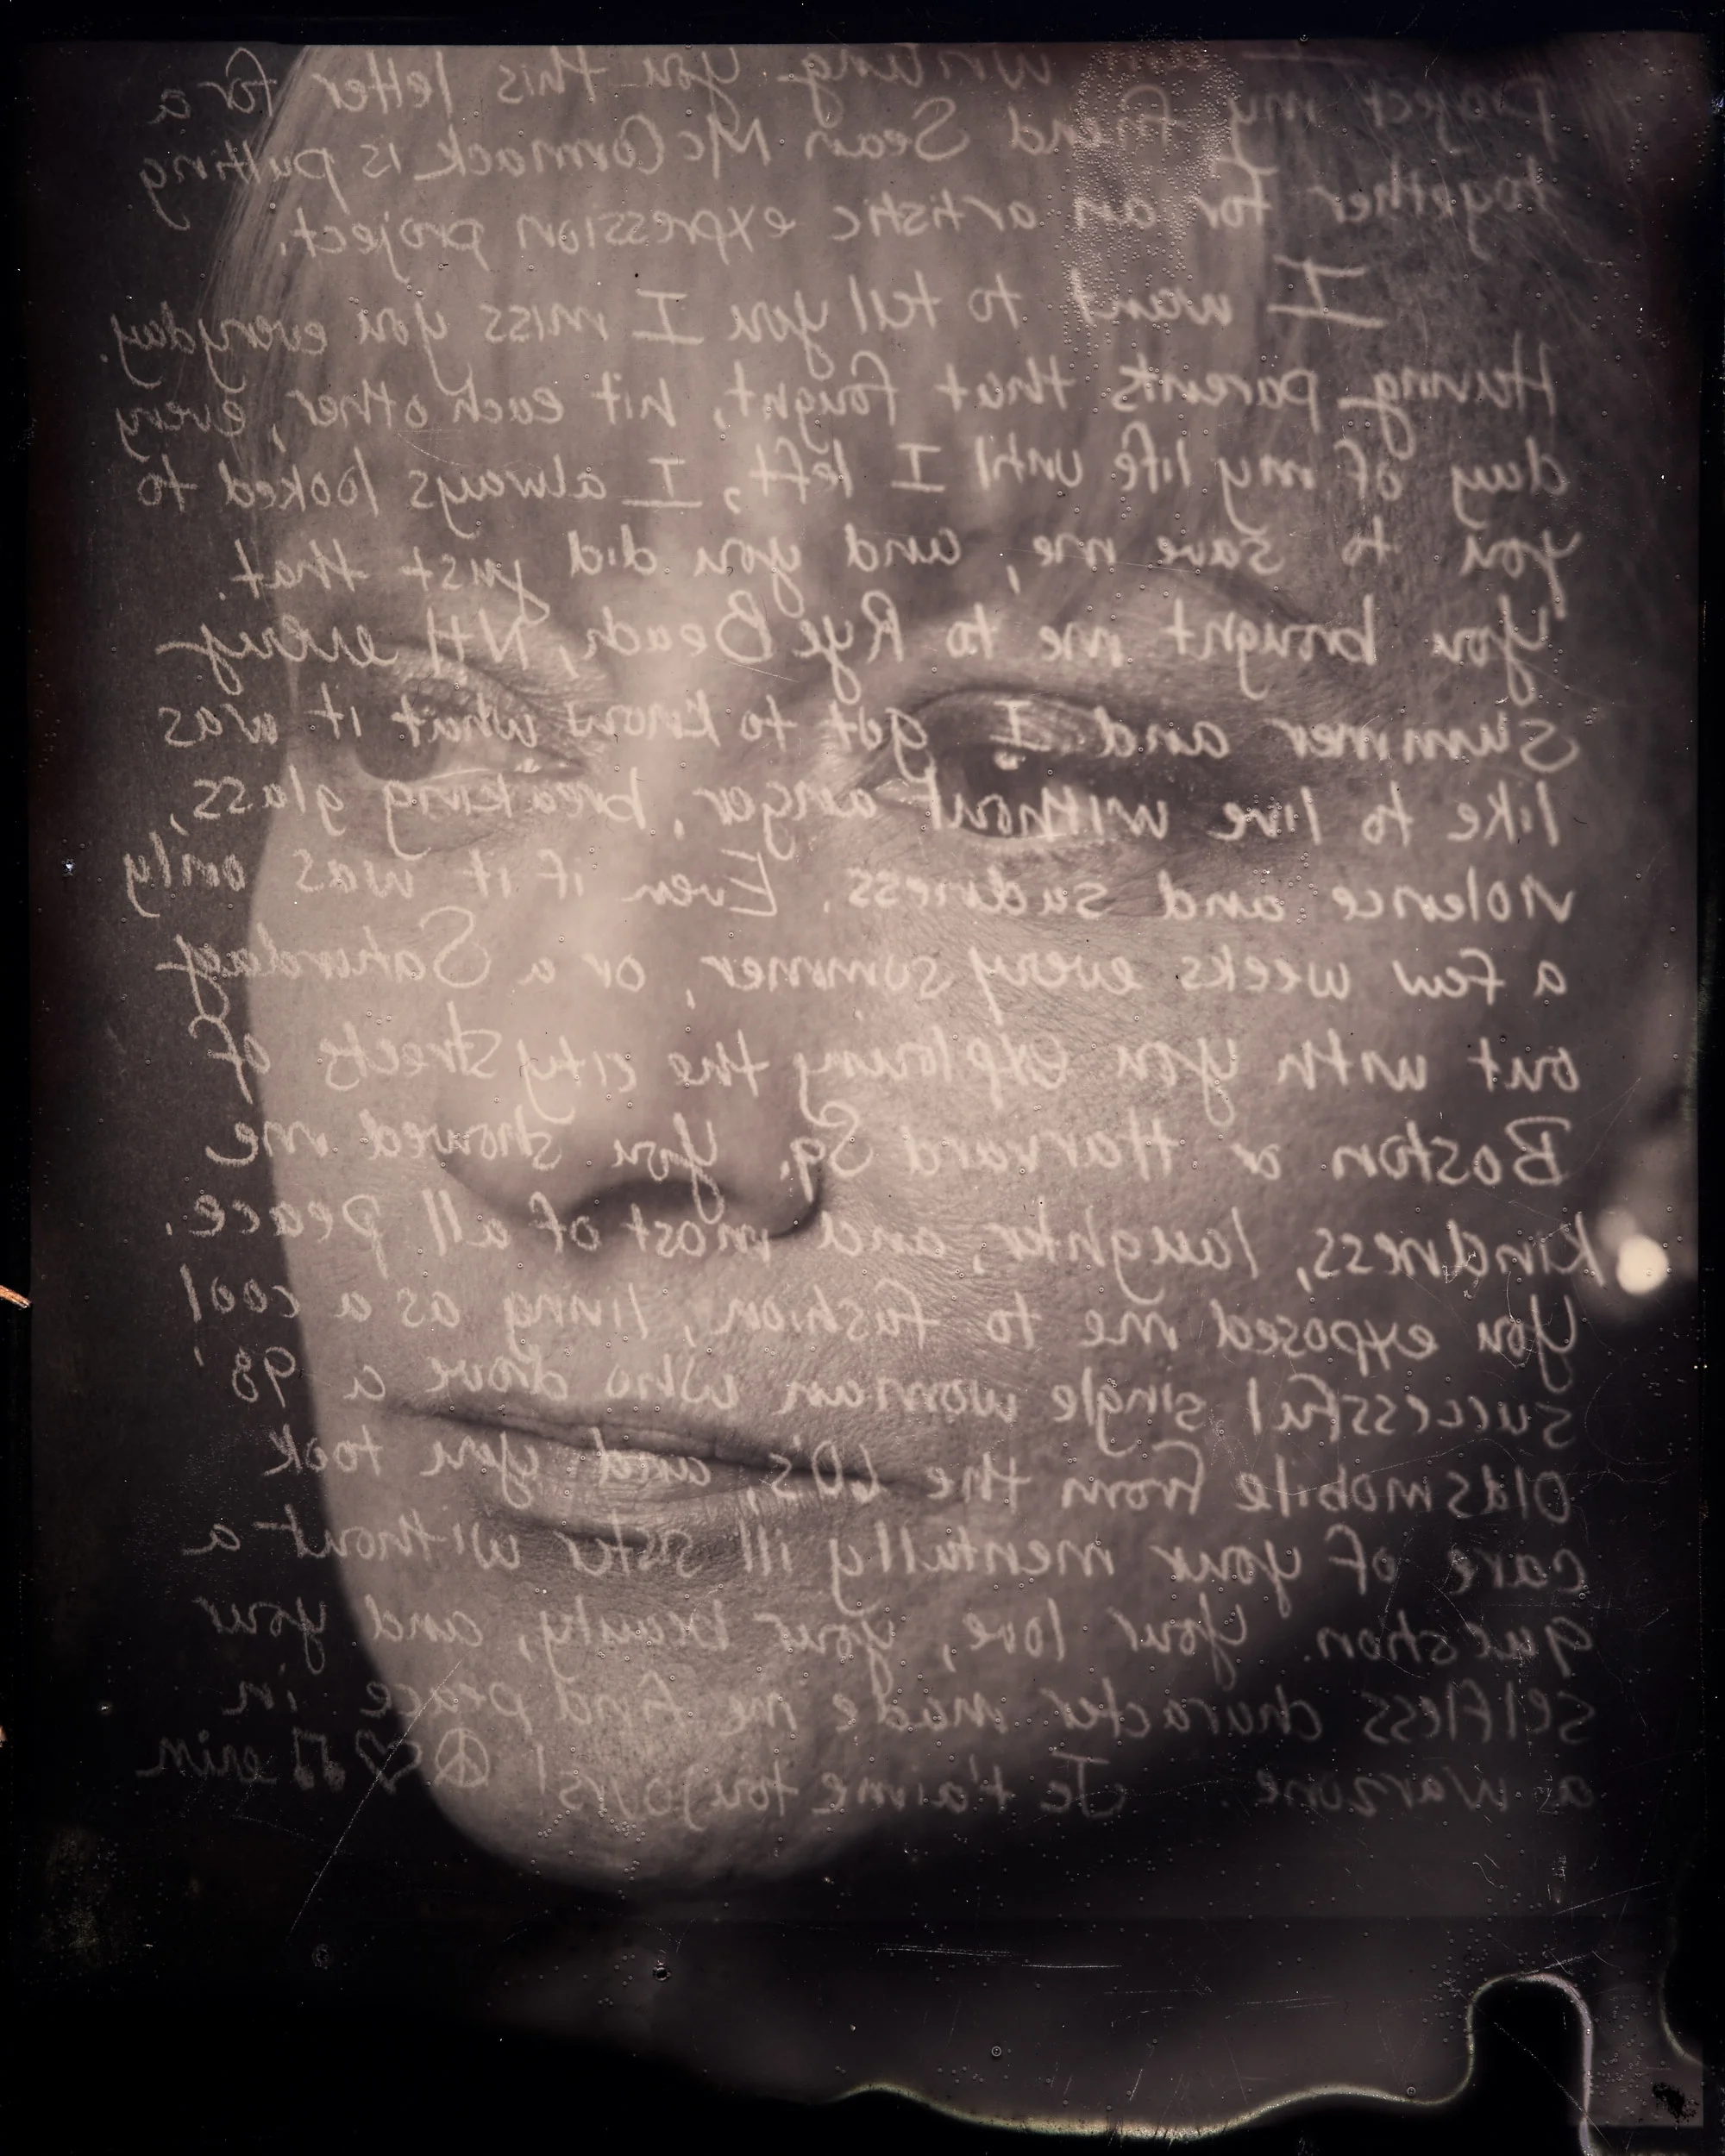 I am writing you this letter for a
project my friend Sean McCormack is putting
together for an artistic expression project.
I want to tell you I miss you everyday.
Having parents that fought, hit each other, every
day of my life until I left, I always looked to
you to save me, and you did just that.
You brought me to Rye Beach, NH every
summer and I got to know what it was
like to live without anger, breaking glass,
violence and sadness. Even if it was only
a few weeks every summer, or a Saturday
out with you exploring the city streets of
Boston or Harvard Sq. You showed me
kindness, laughter, and most of all peace.
You exposed me to fashion, living as a cool
successful single woman who drove a 98'
Oldsmobile from the 60's, and you took
care of your mentally ill sister without a
question. Your love, your beauty, and your
selfless character made me find peace in
a warzone. Je t'aime toujours! ☮♡♫ erin